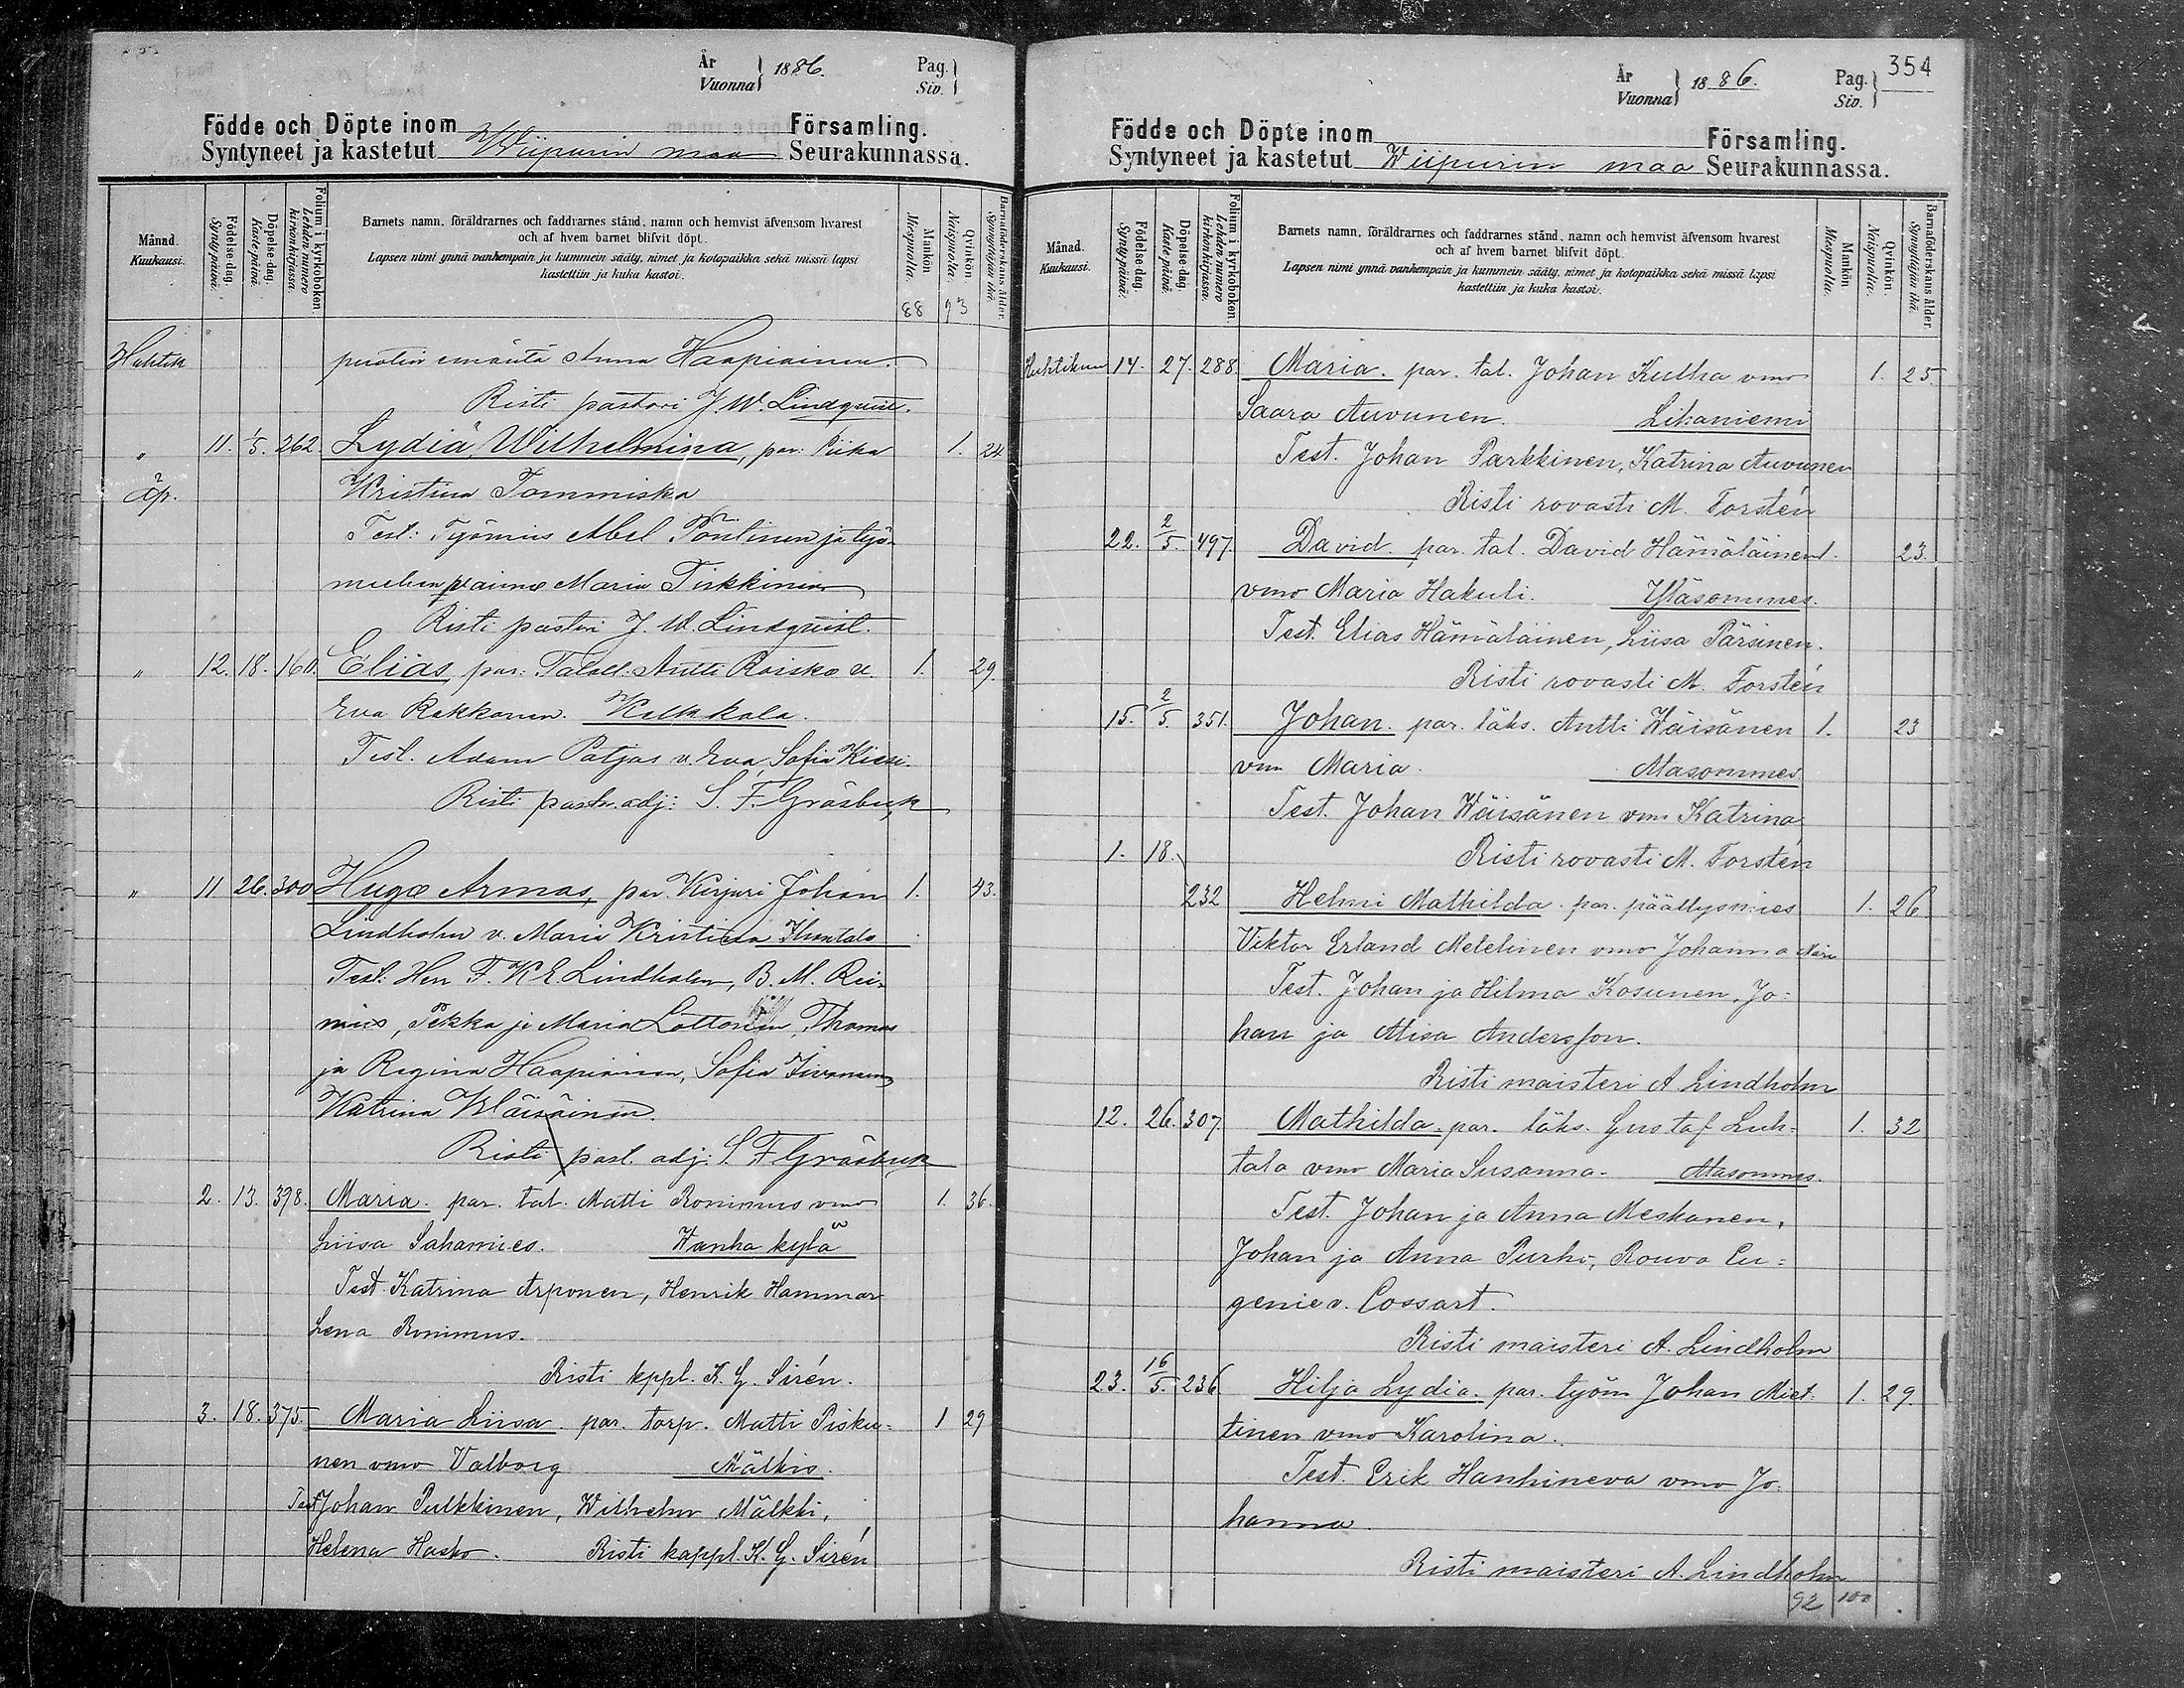 År
Vuonna } 1886.
Pag.
Siv. }
Födde och Döpte inom Församling.
Syntyneet ja kastetut Wiipurin maa Seurakunnassa.
Månad.
Kuukausi.
Födelse dag.
Synty päivä.
Döpelse dag.
Kaste päivä.
Folium i kyrkoboken.
Lehden numero kirkonkirjassa.
Barnets namn, föräldrarnes och faddrarnes stånd, namn och hemvist äfvensom hvarest
och af hvem barnet blifvit döpt.
Lapsen nimi ynnä vanhempain ja kummein sääty, nimet ja kotopaikka sekä missä lapsi
kastettiin ja kuka kastoi.
Mankön.
Miespuolia.
Qvinkön.
Naispuolia.
Barnaföderskans ålder.
Synnyttäjän ikä.
88 93
Huhtik puolin emäntä Anna Haapiainen.
Risti pastori J. W. Lindquist.
" 11. 1/5. 262 Lydia Wilhelmina, par: Piika 1. 24
Ap. Kristina Tommiska
Test: Työmies Abel Pöntinen ja työ-
miehen vaimo Maria Tirkkinen
Risti pastori J. W. Lindquist.
" 12. 18. 160. Elias, par: Taloll. Antti Roisko v. 1. 29.
Eva Rakkonen. Kilkkala.
Test. Adam Patjas v. Eva, Sofia Kiesi.
Risti past. adj: S. F. Gräsbeck
" 11 26. 300 Hugo Armas, par. Kirjuri Johan 1. 43.
Lindholm v. Maria Kristina
Test: Herr F. K E. Lindholm, B. M. Rei-
nius, Pekka ja Maria Lottonen, Thomas
ja Regina Haapiainen, Sofia Iivonen
Katrina Wäisäinen.
Risti past. adj: S. F Gräsbeck
2. 13. 398. Maria. par. tal. Matti Ronimus vmo 1. 36.
Liisa Sahamies. Wanha kylä
Test Katrina Arponen, Henrik Hammar
Lena Ronimus.
Risti kppl. K. G. Sirén.
3. 18. 375 Maria Liisa. par. torp. Matti Pisku- 1 29
nen vmo Valborg Mälkis.
Test Johan Pulkkinen, Wilhelm Mälkki,
Helena Hasko. Risti kappl. K. G. Sirén
354
År
Vuonna } 1886.
Pag.
Siv. }
Födde och Döpte inom Församling.
Syntyneet ja kastetut Wiipurin maa Seurakunnassa.
Månad.
Kuukausi.
Födelse dag.
Synty päivä.
Döpelse dag.
Kaste päivä.
Folium i kyrkoboken.
Lehden numero kirkonkirjassa.
Barnets namn, föräldrarnes och faddrarnes stånd, namn och hemvist äfvensom hvarest
och af hvem barnet blifvit döpt.
Lapsen nimi ynnä vanhempain ja kummein sääty, nimet ja kotopaikka sekä missä lapsi
kastettiin ja kuka kastoi.
Mankön.
Miespuolia.
Qvinkön.
Naispuolia.
Barnaföderskans ålder.
Synnyttäjän ikä.
Huhtikuu 14. 27. 288. Maria. par. tal. Johan Kultha vmo 1. 25
Saara Auvunen. Likaniemi
Test. Johan Parkkinen, Katrina Auvunen
Risti rovasti M. Forstén
22. 2/5. 497. David. par. tal. David Hämäläinen 1. 23.
vmo Maria Hakuli. Yläsommes.
Test. Elias Hämäläinen, Liisa Pärsinen.
Risti rovasti M. Forstén
15. 2/5. 351. Johan. par. läks. Antti Wäisänen 1. 23
vmo Maria. Alasommes
Test. Johan Wäisänen vmo Katrina
1. 18. Risti rovasti M. Forstén
232 Helmi Mathilda. par. päällysmies 1. 26
Viktor Erland Metelinen vmo Johanna Mari
Test. Johan ja Hilma Kosunen, Jo:
han ja Alisa Andersson.
Risti maisteri A. Lindholm
12. 26. 307. Mathilda. par. läks. Gustaf Luh- 1. 32
tala vmo Maria Susanna. Alasommes.
Test. Johan ja Anna Meskanen,
Johan ja Anna Purho, Rouva Eu:
genie v. Cossart.
Risti maisteri A. Lindholm
23. 16/5. 236 Hilja Lydia. par. työm Johan Miet: 1. 29.
tinen vmo Karolina.
Test. Erik Hanhineva vmo Jo-
hanna.
Risti maisteri A. Lindholm
92 100